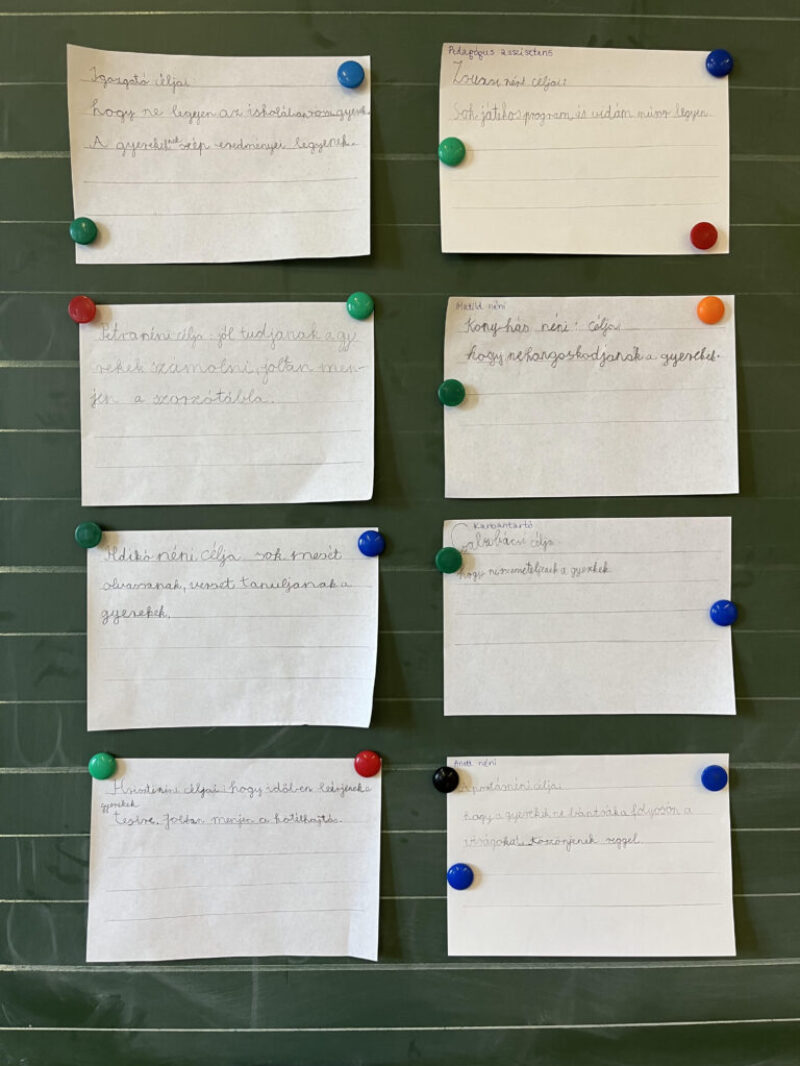 Igazgató céljai
hogy ne legyen az iskolában rossz gyerek.
A gyerekeknek szép eredményei legyenek.
Pedagógus asszisztens
Zsuzsi néni céljai:
Sok játékos program, és vidám műsor legyen.
Petra néni célja: jól tudjanak a gye
rekek számolni, jóltan men-
jen a szorzótábla.
Matild néni
Konyhás néni: célja
hogy ne hangoskodjanak a gyerekek.
Ildikó néni célja sok mesét
olvassanak, verset tanuljanak a
gyerekek.
Karbantartó
bácsi célja
hogy ne szemeteljenek a gyerekek
néni céljai: hogy időben leérjenek a
gyerekek
tesire. Jobban menjen a kötélhajtás.
Anett néni
A portásnéni célja
hogy a gyerekek ne bántsák a folyosón a
virágokat. Köszönjenek reggel.